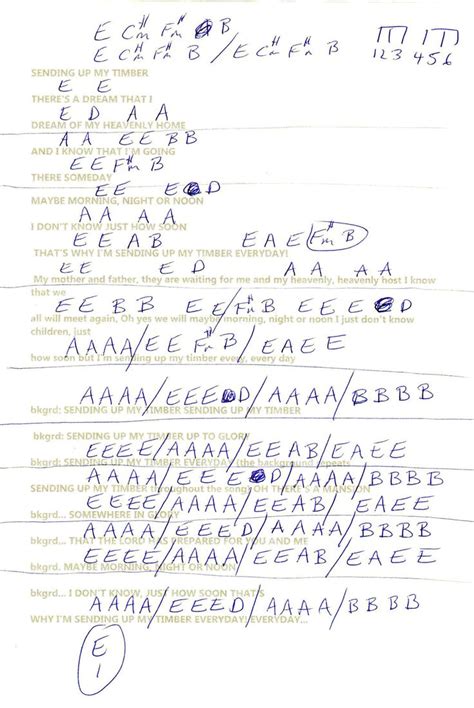 E C#m F#m B
E C#m F#m B / E C#m F#m B
123 456
SENDING UP MY TIMBER
E E
THERE'S A DREAM THAT I
E D A A
DREAM OF MY HEAVENLY HOME
A A E E B B
AND I KNOW THAT I'M GOING
E E F#m B
THERE SOMEDAY
E E E D
MAYBE MORNING, NIGHT OR NOON
A A A A
I DON'T KNOW JUST HOW SOON
E E A B E A E F#m B
THAT'S WHY I'M SENDING UP MY TIMBER EVERYDAY!
E E E D A A A A
My mother and father, they are waiting for me and my heavenly, heavenly host I know
that we
E E B B E E / F#m B E E E D
all will meet again, Oh yes we will maybe morning, night or noon I just don't know
children, just
A A A A / E E F#m B / E A E E
how soon but I'm sending up my timber every, every day
A A A A / E E E D / A A A A / B B B B
bkgrd: SENDING UP MY TIMBER SENDING UP MY TIMBER
bkgrd: SENDING UP MY TIMBER UP TO GLORY
E E E E / A A A A / E E A B / E A E E
bkgrd: SENDING UP MY TIMBER EVERYDAY (the background repeats
A A A A / E E E D / A A A A / B B B B
SENDING UP MY TIMBER throughout the song) OH THERE'S A MANSION
E E E E / A A A A / E E A B / E A E E
bkgrd... SOMEWHERE IN GLORY
A A A A / E E E D / A A A A / B B B B
bkgrd... THAT THE LORD HAS PREPARED FOR YOU AND ME
E E E E / A A A A / E E A B / E A E E
bkgrd. MAYBE MORNING, NIGHT OR NOON
bkgrd... I DON'T KNOW, JUST HOW SOON THAT'S
A A A A / E E E D / A A A A / B B B B
WHY I'M SENDING UP MY TIMBER EVERYDAY! EVERYDAY...
E
1